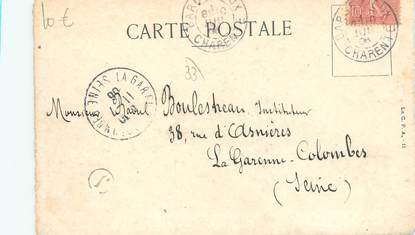 10 €
CARTE POSTALE
CHARENTE
CHARENTE
33
LA GARENNE
SEINE
Monsieur Raoul Boulestreau, Instituteur
38, rue d'Asnières
La Garenne-Colombes
(Seine)